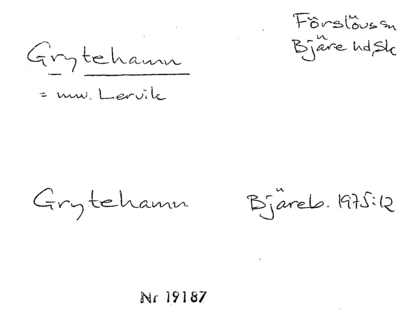 Grytehamn
Förslövs sn
Bjäre hd, Sk
= nuv. Lervik
Grytehamn Bjäreb. 1975:12
Nr 19187